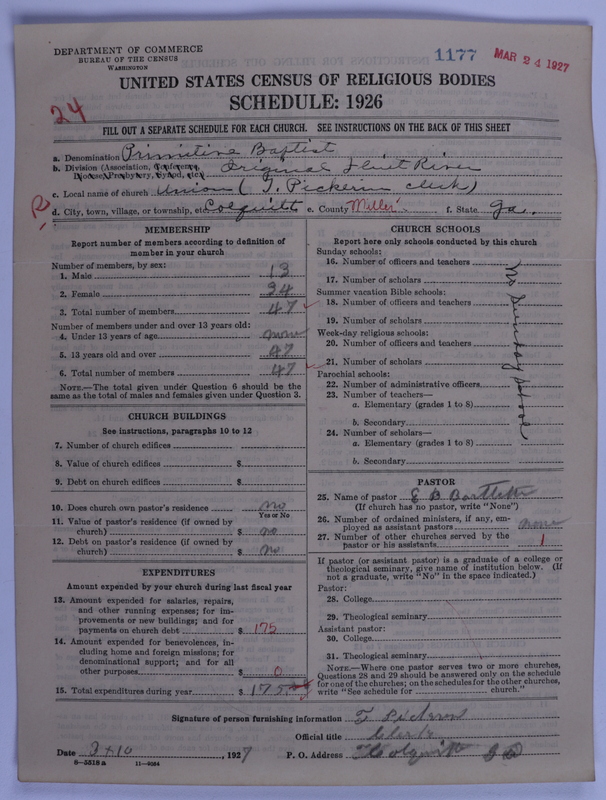 DEPARTMENT OF COMMERCE
BUREAU OF THE CENSUS
WASHINGTON
1177
MAR 24 1927
UNITED STATES CENSUS OF RELIGIOUS BODIES
SCHEDULE: 1926
24
FILL OUT A SEPARATE SCHEDULE FOR EACH CHURCH. SEE INSTRUCTIONS ON THE BACK OF THIS SHEET
a. Denomination Primitive Baptist
b. Division (Association, Conference, Original Flint River
Diocese, Presbytery, Synod, etc.)
c. Local name of church Union (T. Pickerin clerk)
d. City, town, village, or township, etc. Colquitt e. County Miller f. State Ga.
MEMBERSHIP
Report number of members according to definition of
member in your church
Number of members, by sex:
1. Male 13
2. Female 34
3. Total number of members 47
Number of members under and over 13 years old:
4. Under 13 years of age none
5. 13 years old and over 47
6. Total number of members 47
NOTE.—The total given under Question 6 should be the
same as the total of males and females given under Question 3.
CHURCH BUILDINGS
See instructions, paragraphs 10 to 12
7. Number of church edifices
8. Value of church edifices $
9. Debt on church edifices $
10. Does church own pastor's residence no
Yes or No
11. Value of pastor's residence (if owned by
church) $ no
12. Debt on pastor's residence (if owned by
church) $ no
EXPENDITURES
Amount expended by your church during last fiscal year
13. Amount expended for salaries, repairs,
and other running expenses; for im-
provements or new buildings; and for
payments on church debt $ 175
14. Amount expended for benevolences, in-
cluding home and foreign missions; for
denominational support; and for all
other purposes $ 0
15. Total expenditures during year $ 175.
CHURCH SCHOOLS
Report here only schools conducted by this church
Sunday schools:
16. Number of officers and teachers
17. Number of scholars
Summer vacation Bible schools:
18. Number of officers and teachers
19. Number of scholars
Week-day religious schools:
20. Number of officers and teachers
21. Number of scholars
Parochial schools:
22. Number of administrative officers
23. Number of teachers—
a. Elementary (grades 1 to 8)
b. Secondary
24. Number of scholars—
a. Elementary (grades 1 to 8)
b. Secondary
No Sunday School
PASTOR
25. Name of pastor E B Bartlett
(If church has no pastor, write "None")
26. Number of ordained ministers, if any, em-
ployed as assistant pastors none
27. Number of other churches served by the
pastor or his assistants 1
If pastor (or assistant pastor) is a graduate of a college or
theological seminary, give name of institution below. (If
not a graduate, write "No" in the space indicated.)
Pastor:
28. College
29. Theological seminary
Assistant pastor:
30. College
31. Theological seminary
NOTE.—Where one pastor serves two or more churches,
Questions 28 and 29 should be answered only on the schedule
for one of the churches; on the schedules for the other churches,
write "See schedule for church."
Signature of person furnishing information T Pickron
Official title Clerk
Date 3 + 10, 1927 P. O. Address Colquitt Ga
8—5518 a 11—9324